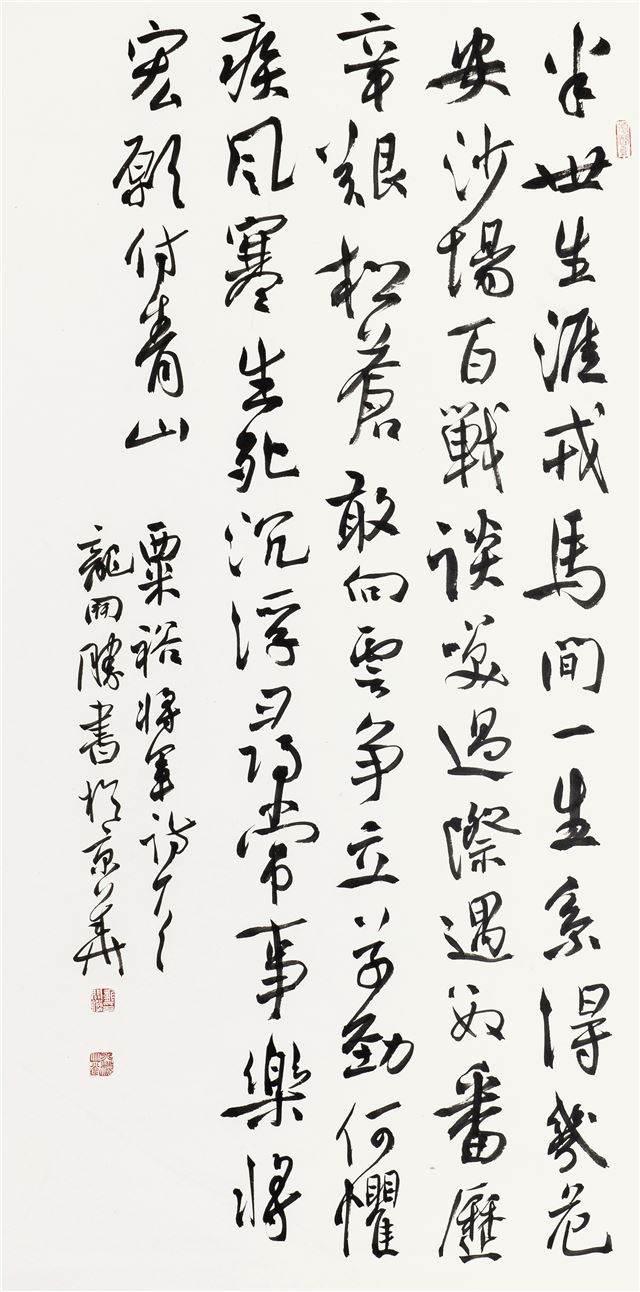 半世生涯戎馬間一生系得幾危
安沙場百戰談笑過際遇數番歷
辛艱松蒼敢向雲争立草勁何懼
疾風寒生死沉浮尋常事樂將
宏願付青山
粟裕將軍詩
龍開勝書於京華